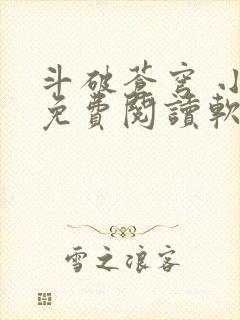 斗破蒼穹 小
免費閱讀軟
雪之浪客